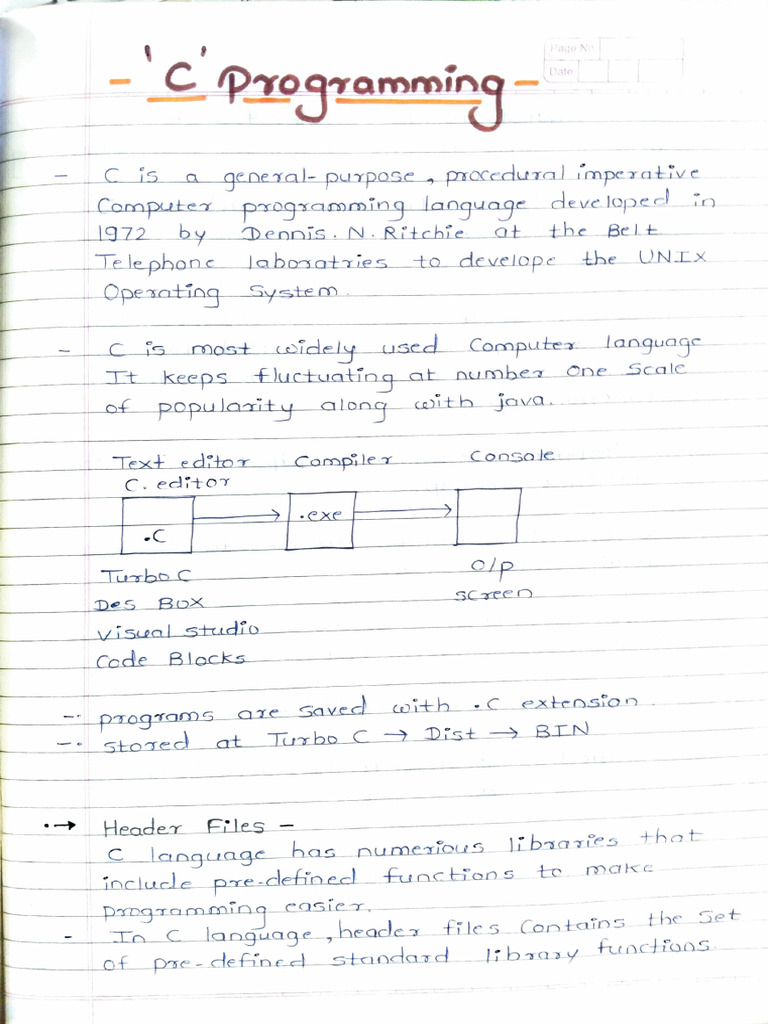 Page No
Date
- 'C' Programming -
- C is a general-purpose, procedural imperative
Computer programming language developed in
1972 by Dennis.N.Ritchie at the Belt
Telephone laboratries to develope the UNIX
Operating System.
- C is most widely used Computer language
It keeps fluctuating at number One Scale
of popularity along with java.
Text editor Compiler Console
C. editor
.C .exe
Turbo C O/P
Dos BOX screen
Visual studio
Code Blocks
-. programs are saved with .C extension.
-. stored at Turbo C → Dist → BIN
.→ Header Files -
C language has numerious libraries that
include pre-defined functions to make
programming easier.
- In C language, header files Contains the Set
of pre-defined standard library functions.